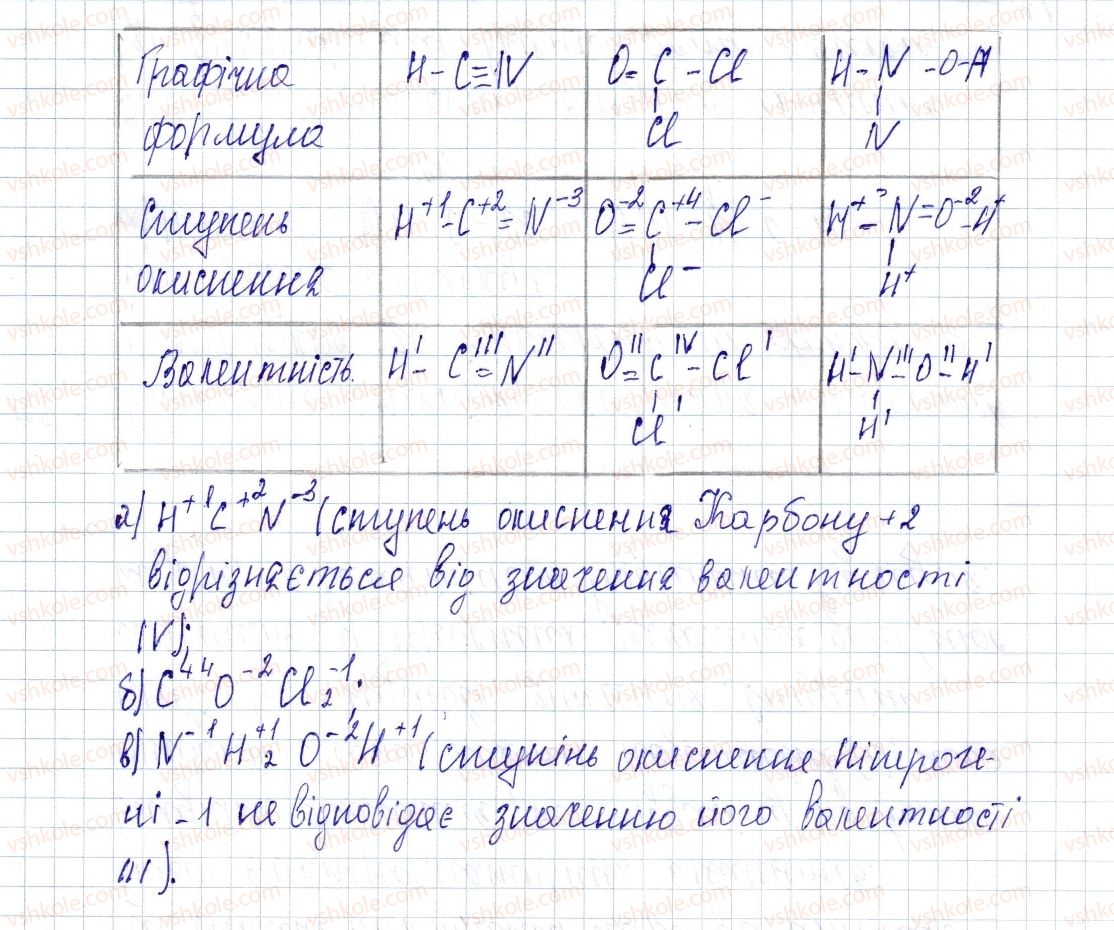 Графічна формула | H - C ≡ N | O = C - Cl | H - N - O - H
Cl | N
Ступень окиснення | H⁺¹ - C⁺² ≡ N⁻³ | O⁻² = C⁺⁴ - Cl⁻ | H⁺ - N - O⁻² - H⁺
Cl⁻ | H⁺
Валентність. | Hᴵ - Cᴵᴵᴵ ≡ Nᴵᴵ | Oᴵᴵ = Cᴵⱽ - Clᴵ | Hᴵ - Nᴵᴵᴵ - Oᴵᴵ - Hᴵ
Clᴵ | Hᴵ
а) H⁺¹C⁺²N⁻³ (ступень окиснення Карбону +2
відрізнається від значення валентності
IV);
б) C⁺⁴O⁻²Cl₂⁻¹;
в) N⁻¹H₂⁺¹O⁻²H⁺¹ (ступінь окиснення Нітроге-
ні -1 не відповідає значенню його валентності
III).